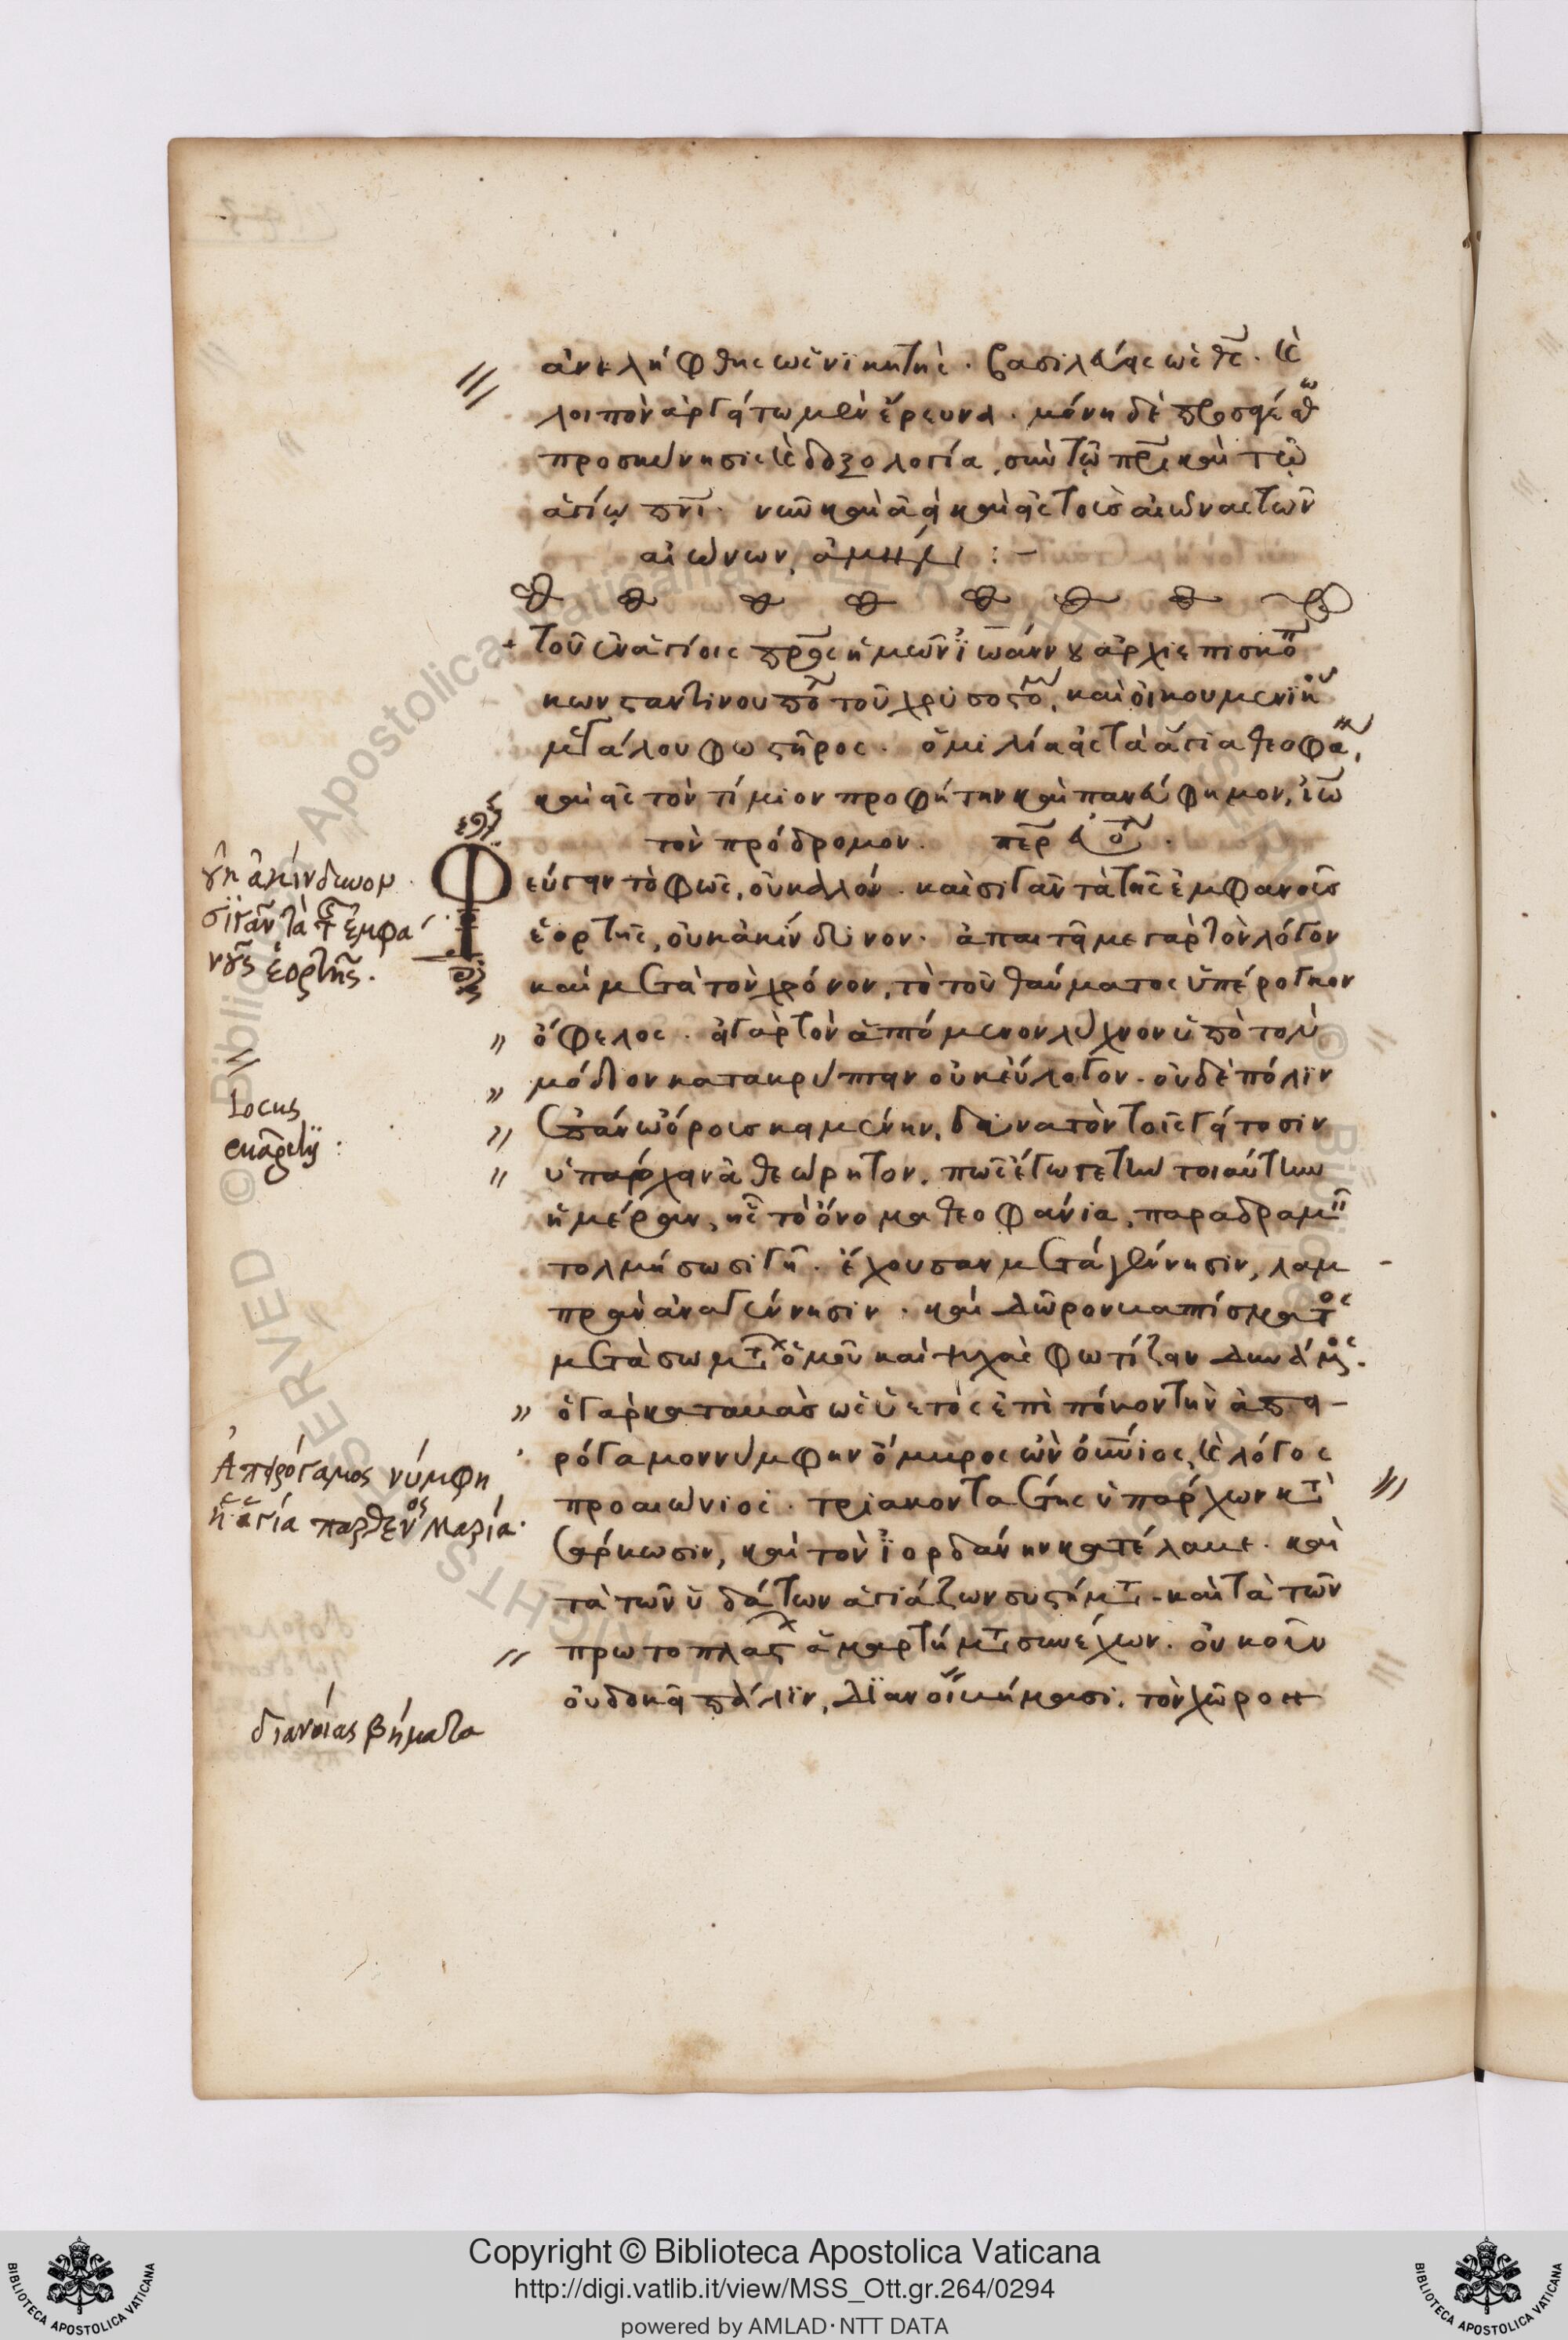 ἀνελήφθης ὡς νικητής. βασιλεύεις ὡς θς. καὶ
λοιπὸν ἀργείτω μὲν ἔρευνα. μόνη δὲ
προσκύνησις καὶ δοξολογία, σὺν τῷ πρι καὶ τῷ
ἁγίῳ πνι. νῦν καὶ ἀεὶ καὶ εἰς τοὺς αἰῶνας τῶν
αἰώνων, ἀμήν :-
+ τοῦ ἐν ἁγίοις πρς ἡμῶν ἰωάννου ἀρχιεπισκο
κωνσταντινουπο τοῦ χρυσοστο, καὶ οἰκουμενικ
μεγάλου φωστῆρος. ὁμιλία εἰς τὰ ἅγια θεοφα,
καὶ εἰς τὸν τίμιον προφήτην καὶ πανεύφημον, ἰω
τὸν πρόδρομον.
Φεύγειν τὸ φῶς, οὐ καλόν. καὶ σιγᾶν τὰ τῆς ἐμφανοῦς
ἑορτῆς, οὐκ ἀκίνδυνον. ἀπαιτεῖ με γὰρ τὸν λόγον
καὶ μετὰ τὸν χρόνον, τὸ τοῦ θαύματος ὑπέρογκον
ὄφελος. εἰ γὰρ τὸν ἁπτόμενον λύχνον ὑπὸ τὸν
μόδιον κατακρύπτειν οὐκ εὔλογον. οὐδὲ πόλιν
ἐπάνω ὄρους κειμένην, δυνατὸν τοῖς γείτοσιν
ὑπάρχειν ἀθεώρητον. πῶς ἔγωγε τὴν τοιαύτην
ἡμέραν, ἧς τὸ ὄνομα θεοφάνια, παραδραμεῖν
τολμήσω σιγῇ. ἔχουσαν μετὰ γέννησιν, λαμ-
πρὰν ἀναγέννησιν. καὶ δῶρον
μετὰ σωμτ ὁμοῦ καὶ ψυχὰς φωτίζειν δυνάμς.
ὁ γὰρ καταβὰς ὡς ὑετὸς ἐπὶ πόκον τὴν ἀπει-
ρόγαμον νύμφην ὄμβρος ὢν οὐνιος, καὶ λόγος
προαιώνιος. τριακονταέτης ὑπάρχων κτ
σάρκωσιν, καὶ τὸν ἰορδάνην κατέλαβε. καὶ
τὰ τῶν ὑδάτων ἁγιάζων συστήμτ. καὶ τὰ τῶν
πρωτοπλαστ ἁμαρτήμτ συνέχων. οὐκοῦν
οὐ δοκεῖ πάλιν, διανοίας βήμασι. τὸν χῶρον
γῆ ἀκίνδυνον
σιγᾶν τὰ τ ἐμφα
νοῦς ἑορτῆς.
Locus
euāgelij :
Ἀπειρόγαμος νύμφη
ἡ ἁγία παρθένος Μαρία.
διανοίας βήματα
Copyright © Biblioteca Apostolica Vaticana
http://digi.vatlib.it/view/MSS_Ott.gr.264/0294
powered by AMLAD·NTT DATA
BIBLIOTECA APOSTOLICA VATICANA
BIBLIOTECA APOSTOLICA VATICANA